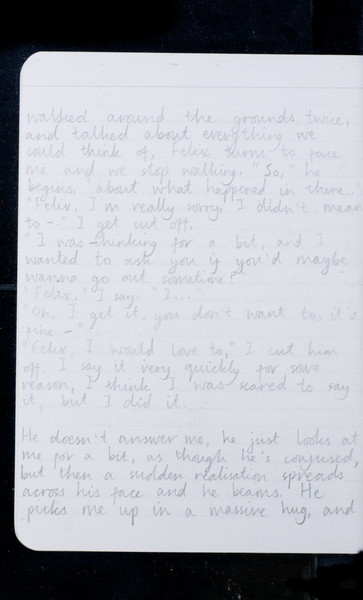 walked around the grounds twice,
and talked about everything we
could think of, Felix turns to face
me and we stop walking. "So," he
begins, "about what happened in there..."
"Felix, I'm really sorry. I didn't mean
to -." I get cut off.
"I was thinking for a bit, and I
wanted to ask you if you'd maybe
wanna go out sometime?"
"Felix," I say. "I...."
"Oh, I get it, you don't want to, it's
fine -"
"Felix, I would love to," I cut him
off. I say it very quickly for some
reason, I think I was scared to say
it, but I did it.
He doesn't answer me, he just looks at
me for a bit, as though he's confused,
but then a sudden realisation spreads
across his face and he beams. He
picks me up in a massive hug, and